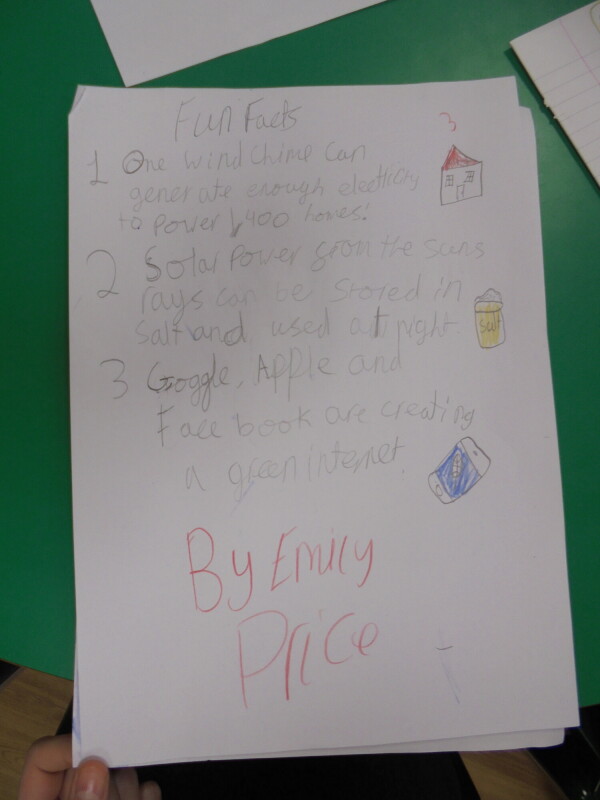 Fun Facts
3
1 One wind chime can
generate enough electricity
to power 1,400 homes!
2 Solar power from the suns
rays can be stored in
salt and used at night.
salt
3 Goggle, Apple and
Face book are creating
a green internet.
By Emily
Price